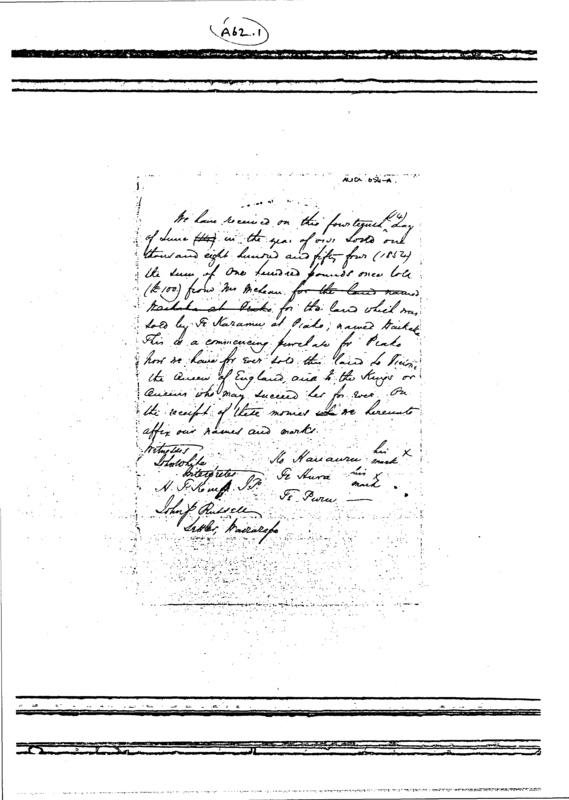 A62.1
We have received on this fourteenth (14) day
of June in the year of our Lord one
thousand eight hundred and fifty four (1854)
the sum of One hundred pounds
(£100) from Mr McLean for the land named
at Piako for the land which was
sold by Te Karamu at Piako, named
This is a commencing purchase for Piako
now we have for ever sold this land to
the Queen of England and to the Kings or
Queens who may succeed her for ever. On
the receipt of these monies we hereunto
affix our names and marks.
Witnesses
John White
Interpreter
H. T. Kemp J.P.
John Russell
Settler,
Ko his x mark
Te Hura his x mark
Te Puru